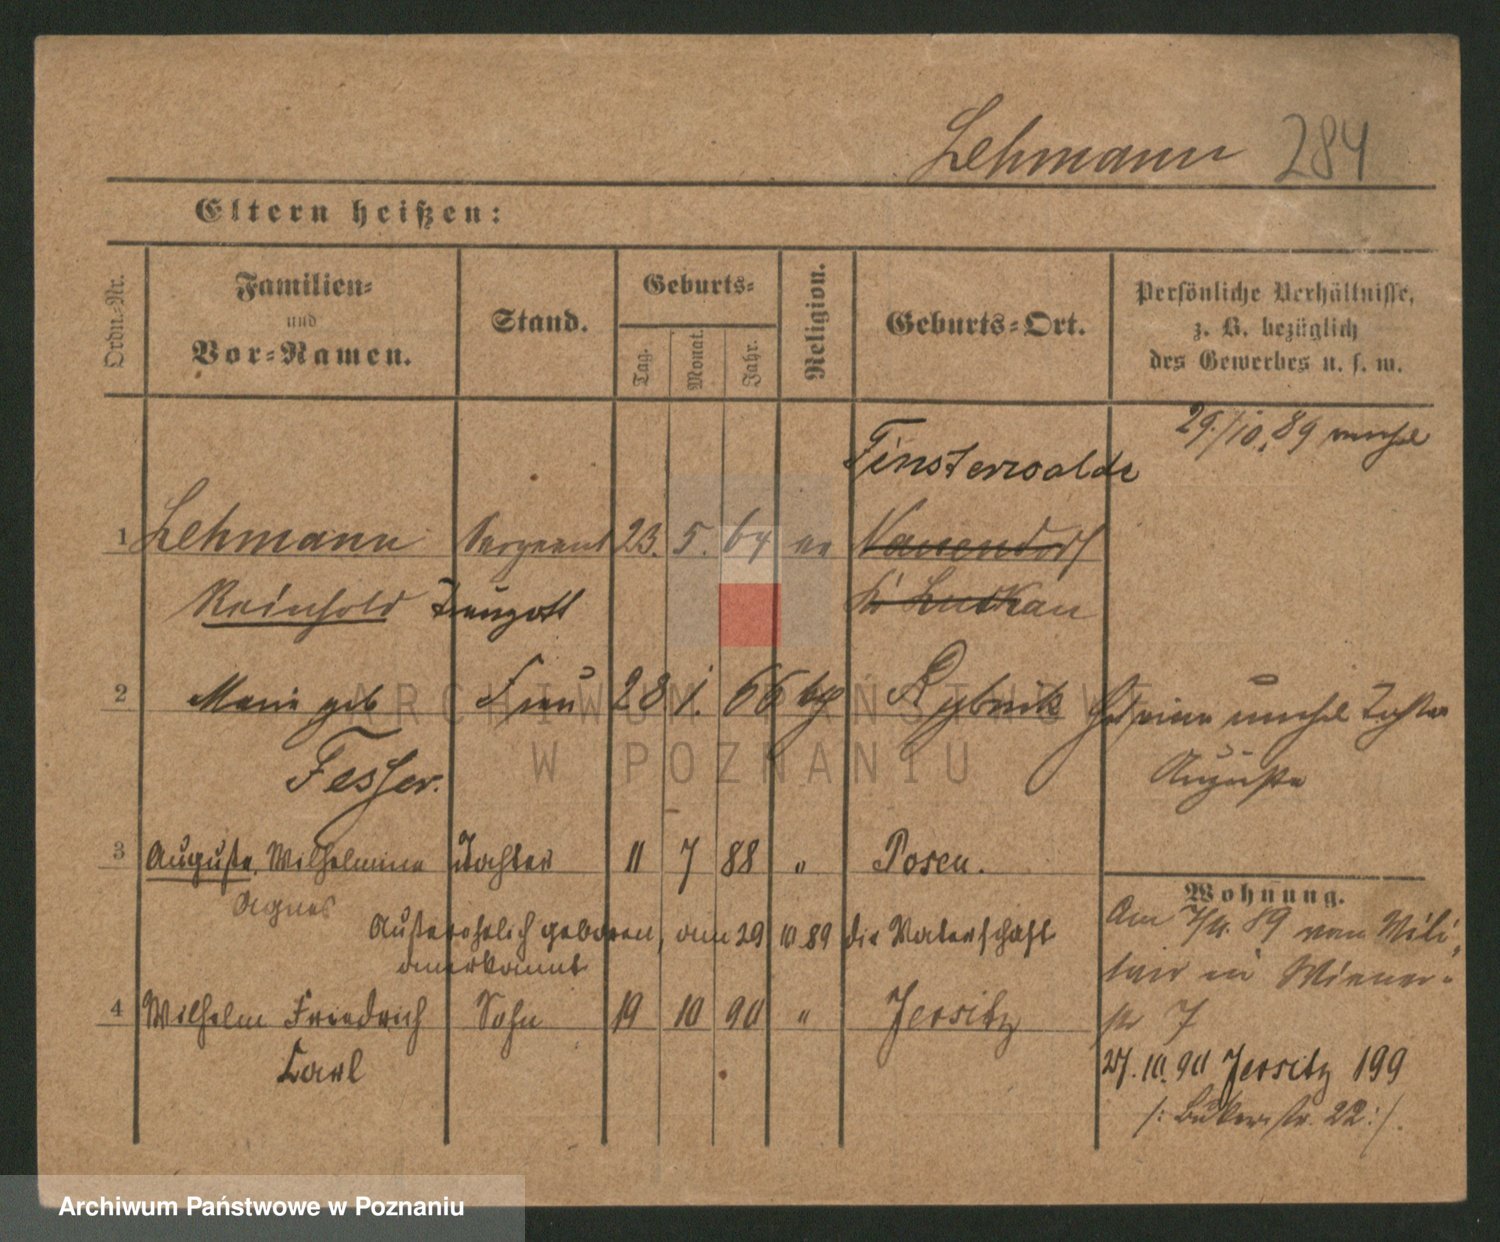 Lehmann 284
Eltern heißen:
Ordn.-Nr.
Familien-
und
Vor-Namen.
Stand.
Geburts-
Tag.
Monat.
Jahr.
Religion.
Geburts-Ort.
Persönliche Verhältnisse,
z. B. bezüglich
des Gewerbes u. s. w.
29./10. 89
Finsterwalde
1 Lehmann Sergeant 23. 5. 64 ev Nauendorf
Reinhold Traugott Kr Luckau
2 Marie geb Frau 28 1. 66 Rybnik Hat eine unehel Tochter
Fesser. Auguste
3 Auguste, Wilhelmine Tochter 11 7 88 " Posen.
Agnes
Wohnung.
Außerehelich geboren, am 29 10 89 die Vaterschaft
anerkannt
Am 7/11. 89 vom Mili-
tair in Wiener-
str 7
4 Wilhelm Friedrich Sohn 19 10 90 " Jersitz
Carl
27. 10. 90 Jersitz 199
/: Bukerstr. 22 :/.
ARCHIWUM PAŃSTWOWE
W POZNANIU
Archiwum Państwowe w Poznaniu